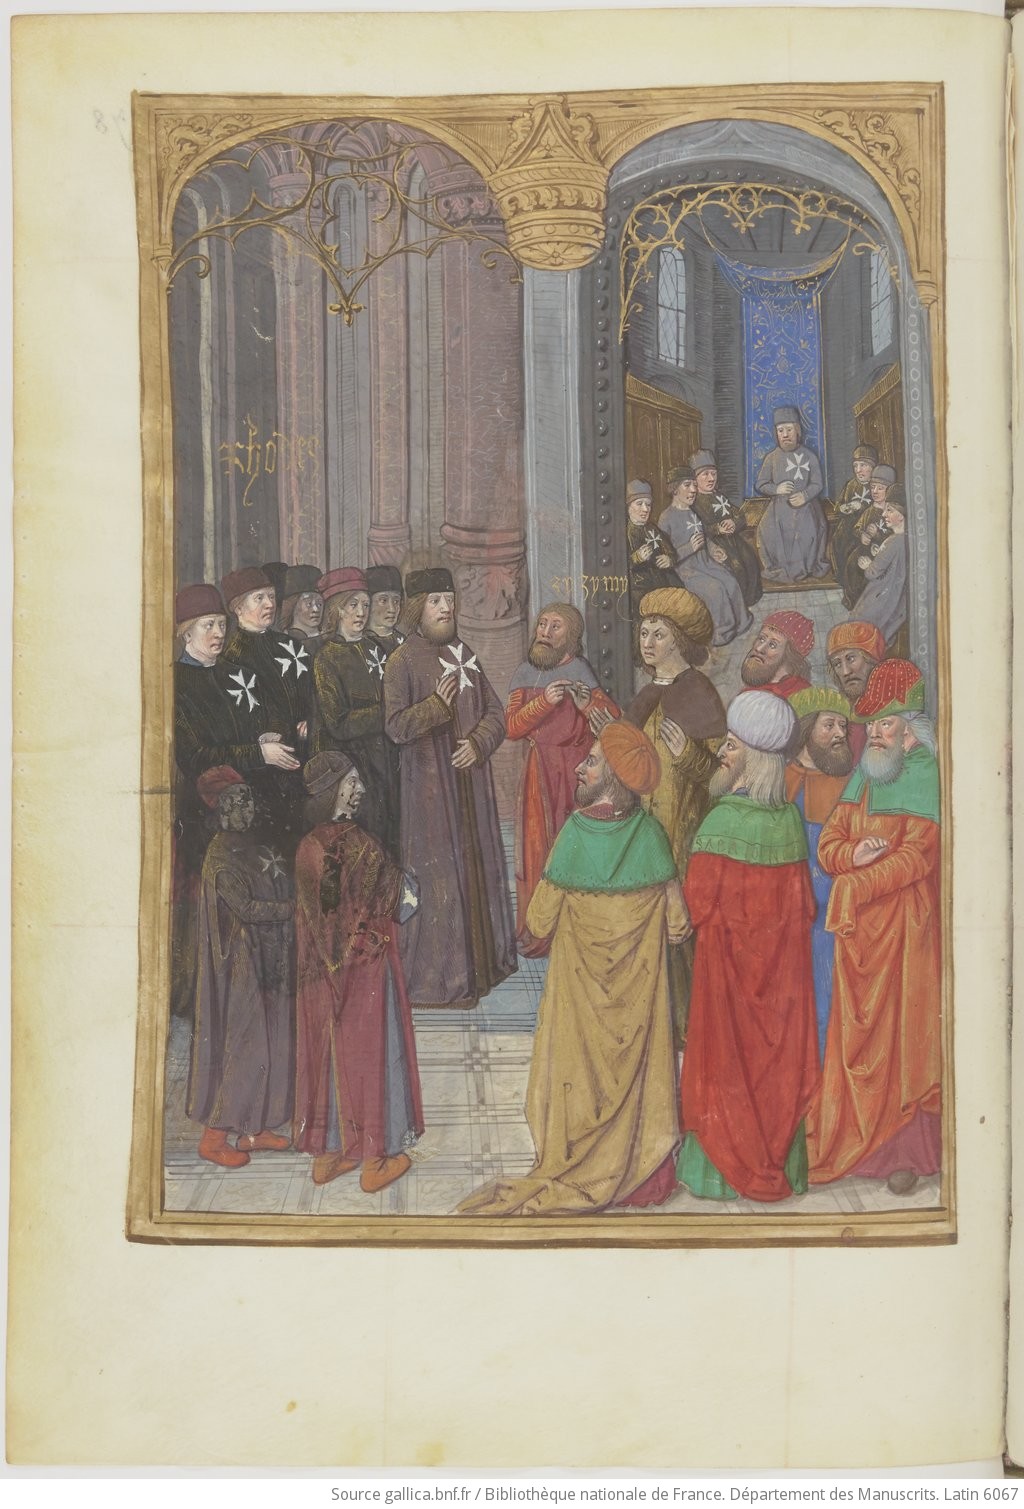 Rhodes
zyzymy
Source gallica.bnf.fr / Bibliothèque nationale de France. Département des Manuscrits. Latin 6067